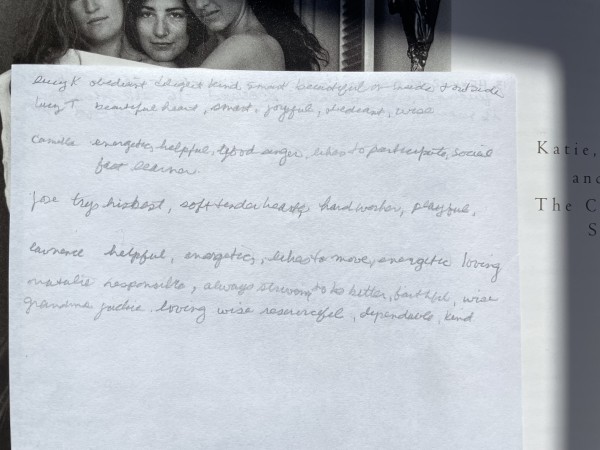 Lucy K obedient diligent kind smart beautiful on inside & outside
Lucy T beautiful heart, smart, joyful, obedient, wise
Camilla energetic, helpful, good singer, likes to participate, social
fast learner.
Jose trys his best, soft tender heart, hard worker, playful,
Lawrence helpful, energetic, likes to move, energetic loving
natalie responsible, always striving to be better, faithful, wise
grandma jackie loving wise resourceful, dependable, kind
Katie,
and
The C
S